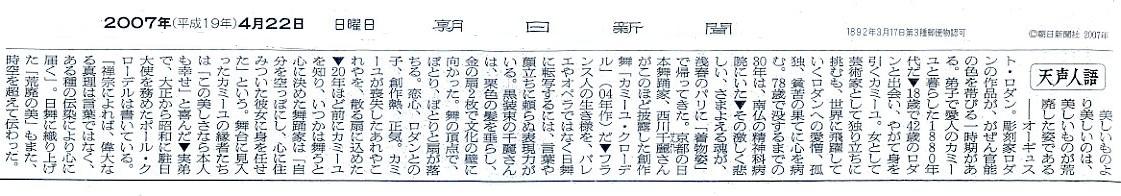 2007年(平成19年)4月22日 日曜日 朝日新聞 1892年3月17日第3種郵便物認可 ©朝日新聞社 2007年
天声人語
美しいものよ
り美しいのは、
美しいものが荒
廃した姿である
――オーギュス
ト・ロダン。彫刻家ロダ
ンの作品が、がぜん官能
の色を帯びる一時期があ
る。弟子で愛人のカミー
ユと暮らした1880年
代だ▼18歳で42歳のロダ
引くカミーユ。女として
芸術家として独り立ちに
挑むも、世界に飛躍して
いくロダンへの愛憎、孤
独、貧苦の果てに心を病
む。78歳で没するまでの
30年は、南仏の精神科病
院にいた▼その激しく悲
しい、さまよえる魂が、
浅春のパリに「着物姿」
で帰ってきた。京都の日
本舞踊家、西川千麗さん
がこのほど披露した創作
舞「カミーユ・クローデ
ル」(04年作)だ▼フラ
ンス人の生き様を、バレ
エやオペラではなく日舞
に転写するには、言葉や
顔立ちに頼らぬ表現力が
いる。黒装束の千麗さん
は、栗色の髪を垂らし、
金の扇2枚で文化の壁に
向かった。舞の頂点で、
ぽとり、ぽとりと扇が落
ちる。恋心、ロダンとの
子、創作熱、正気。カミ
ーユが喪失したあれやこ
れやを、散る扇に込めた
▼20年ほど前にカミーユ
を知り、いつかは舞うと
心に決めた舞踊家は「自
分を空っぽにし、心に住
みついた彼女に身を任せ
た」という。舞台に見入
ったカミーユの縁者たち
は「この美しさなら本人
も幸せ」と喜んだ▼実弟
で、大正から昭和に駐日
大使を務めたポール・ク
ローデルは書いている。
「禅宗によれば、偉大な
る真理は言葉ではなく、
ある種の伝染により心に
届く」。日舞に織り上げ
た「荒廃の美」もまた、
時空を超えて伝わった。